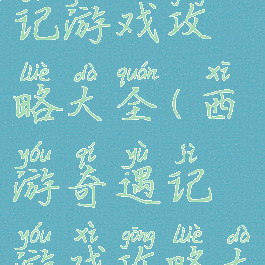 记游戏攻
lüè dà quán xī
略大全(西
yóu qí yù jì
游奇遇记
yóu xì gōng lüè dà
游戏攻略大